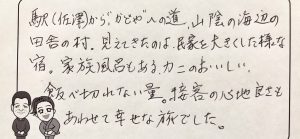 駅(佐津)から"かどや"への道、山陰の海辺の
田舎の村。見えてきたのは、民家を大きくした様な
宿。家族風呂もある。カニのおいしい、
食べ切れない量。接客の心地良さも
あわせて幸せな旅でした。